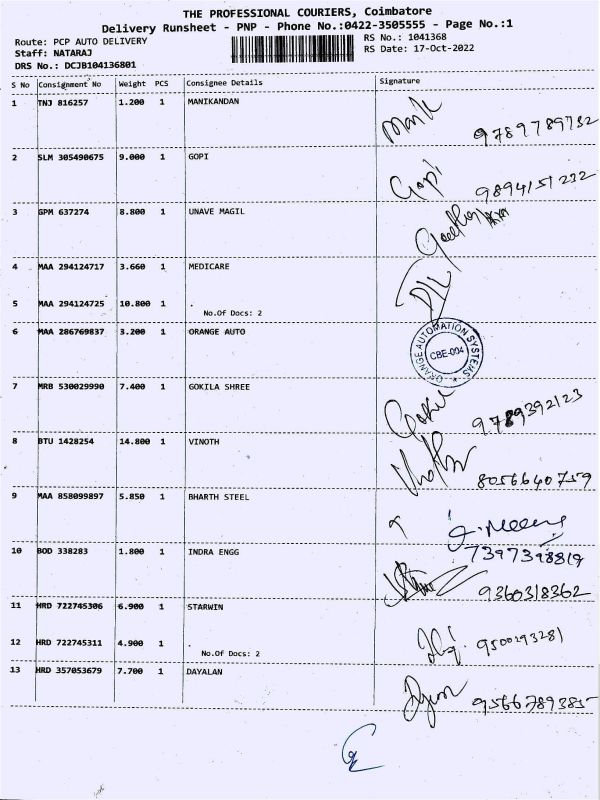 THE PROFESSIONAL COURIERS, Coimbatore
Delivery Runsheet - PNP - Phone No.:0422-3505555 - Page No.:1
Route: PCP AUTO DELIVERY
RS No.: 1041368
Staff: NATARAJ
RS Date: 17-Oct-2022
DRS No.: DCJB104136801
S No Consignment No Weight PCS Consignee Details Signature
1 TNJ 816257 1.200 1 MANIKANDAN
Manik 9789789732
2 SLM 305490675 9.000 1 GOPI
Gopi 9894151232
3 GPM 637274 8.800 1 UNAVE MAGIL
4 MAA 294124717 3.660 1 MEDICARE
5 MAA 294124725 10.800 1 .
No.Of Docs: 2
6 MAA 286769837 3.200 1 ORANGE AUTO
ORANGE AUTOMATION SYSTEMS
CBE-004
7 MRB 530029990 7.400 1 GOKILA SHREE
9789392123
8 BTU 1428254 14.800 1 VINOTH
8056640759
9 MAA 858099897 5.850 1 BHARTH STEEL
7397398819
10 BOD 338283 1.800 1 INDRA ENGG
9360318362
11 HRD 722745306 6.900 1 STARWIN
12 HRD 722745311 4.900 1 .
No.Of Docs: 2
9500293281
13 HRD 357053679 7.700 1 DAYALAN
9566789385